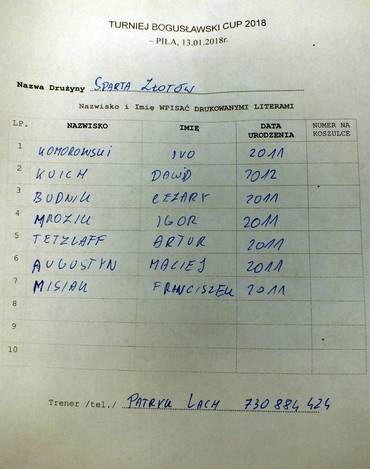 TURNIEJ BOGUSŁAWSKI CUP 2018
– PIŁA, 13.01.2018r.
Nazwa Drużyny SPARTA ZŁOTÓW
Nazwisko i Imię WPISAĆ DRUKOWANYMI LITERAMI
LP. NAZWISKO IMIĘ DATA URODZENIA NUMER NA KOSZULCE
1 KOMOROWSKI IVO 2011
2 KUICH DAWID 2012
3 BUDNIK CEZARY 2011
4 MROZIK IGOR 2011
5 TETZLAFF ARTUR 2011
6 AUGUSTYN MACIEJ 2011
7 MISIAK FRANCISZEK 2011
8
9
10
Trener /tel./ PATRYK LACH 730 884 424